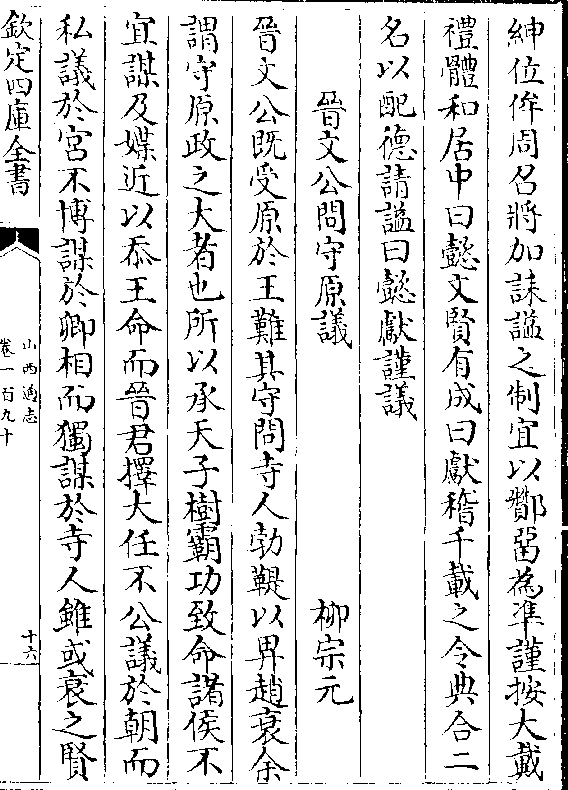 紳位侔周召將加誄謚之制宜以酇留為準謹按大戴
禮體和居中曰懿文賢有成曰獻稽千載之令典合二
名以配德請謚曰懿獻謹議
晉文公問守原議
柳宗元
晉文公既受原於王難其守問寺人勃鞮以畀趙衰余
謂守原政之大者也所以承天子樹霸功致命諸侯不
宜謀及媟近以忝王命而晉君擇大任不公議於朝而
私議於宮不博謀於卿相而獨謀於寺人雖或衰之賢
欽定四庫全書
山西通志
卷一百九十
十六